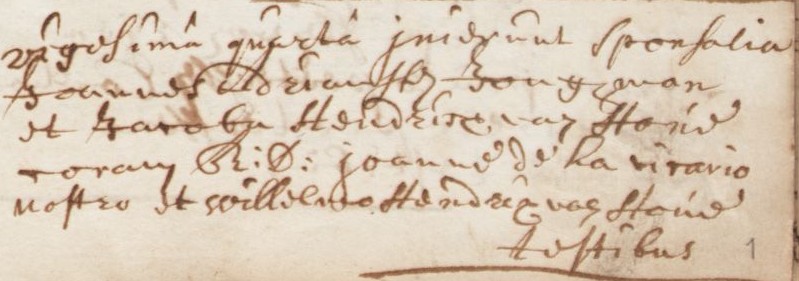 vigesima quarta inierunt sponsalia
Joannes Adriaenss Jongman
et Jacoba Hendricx van Hove
coram R: D: joanne de la vicario
nostro et wilhelmo Hendrix van Hove
testibus 1